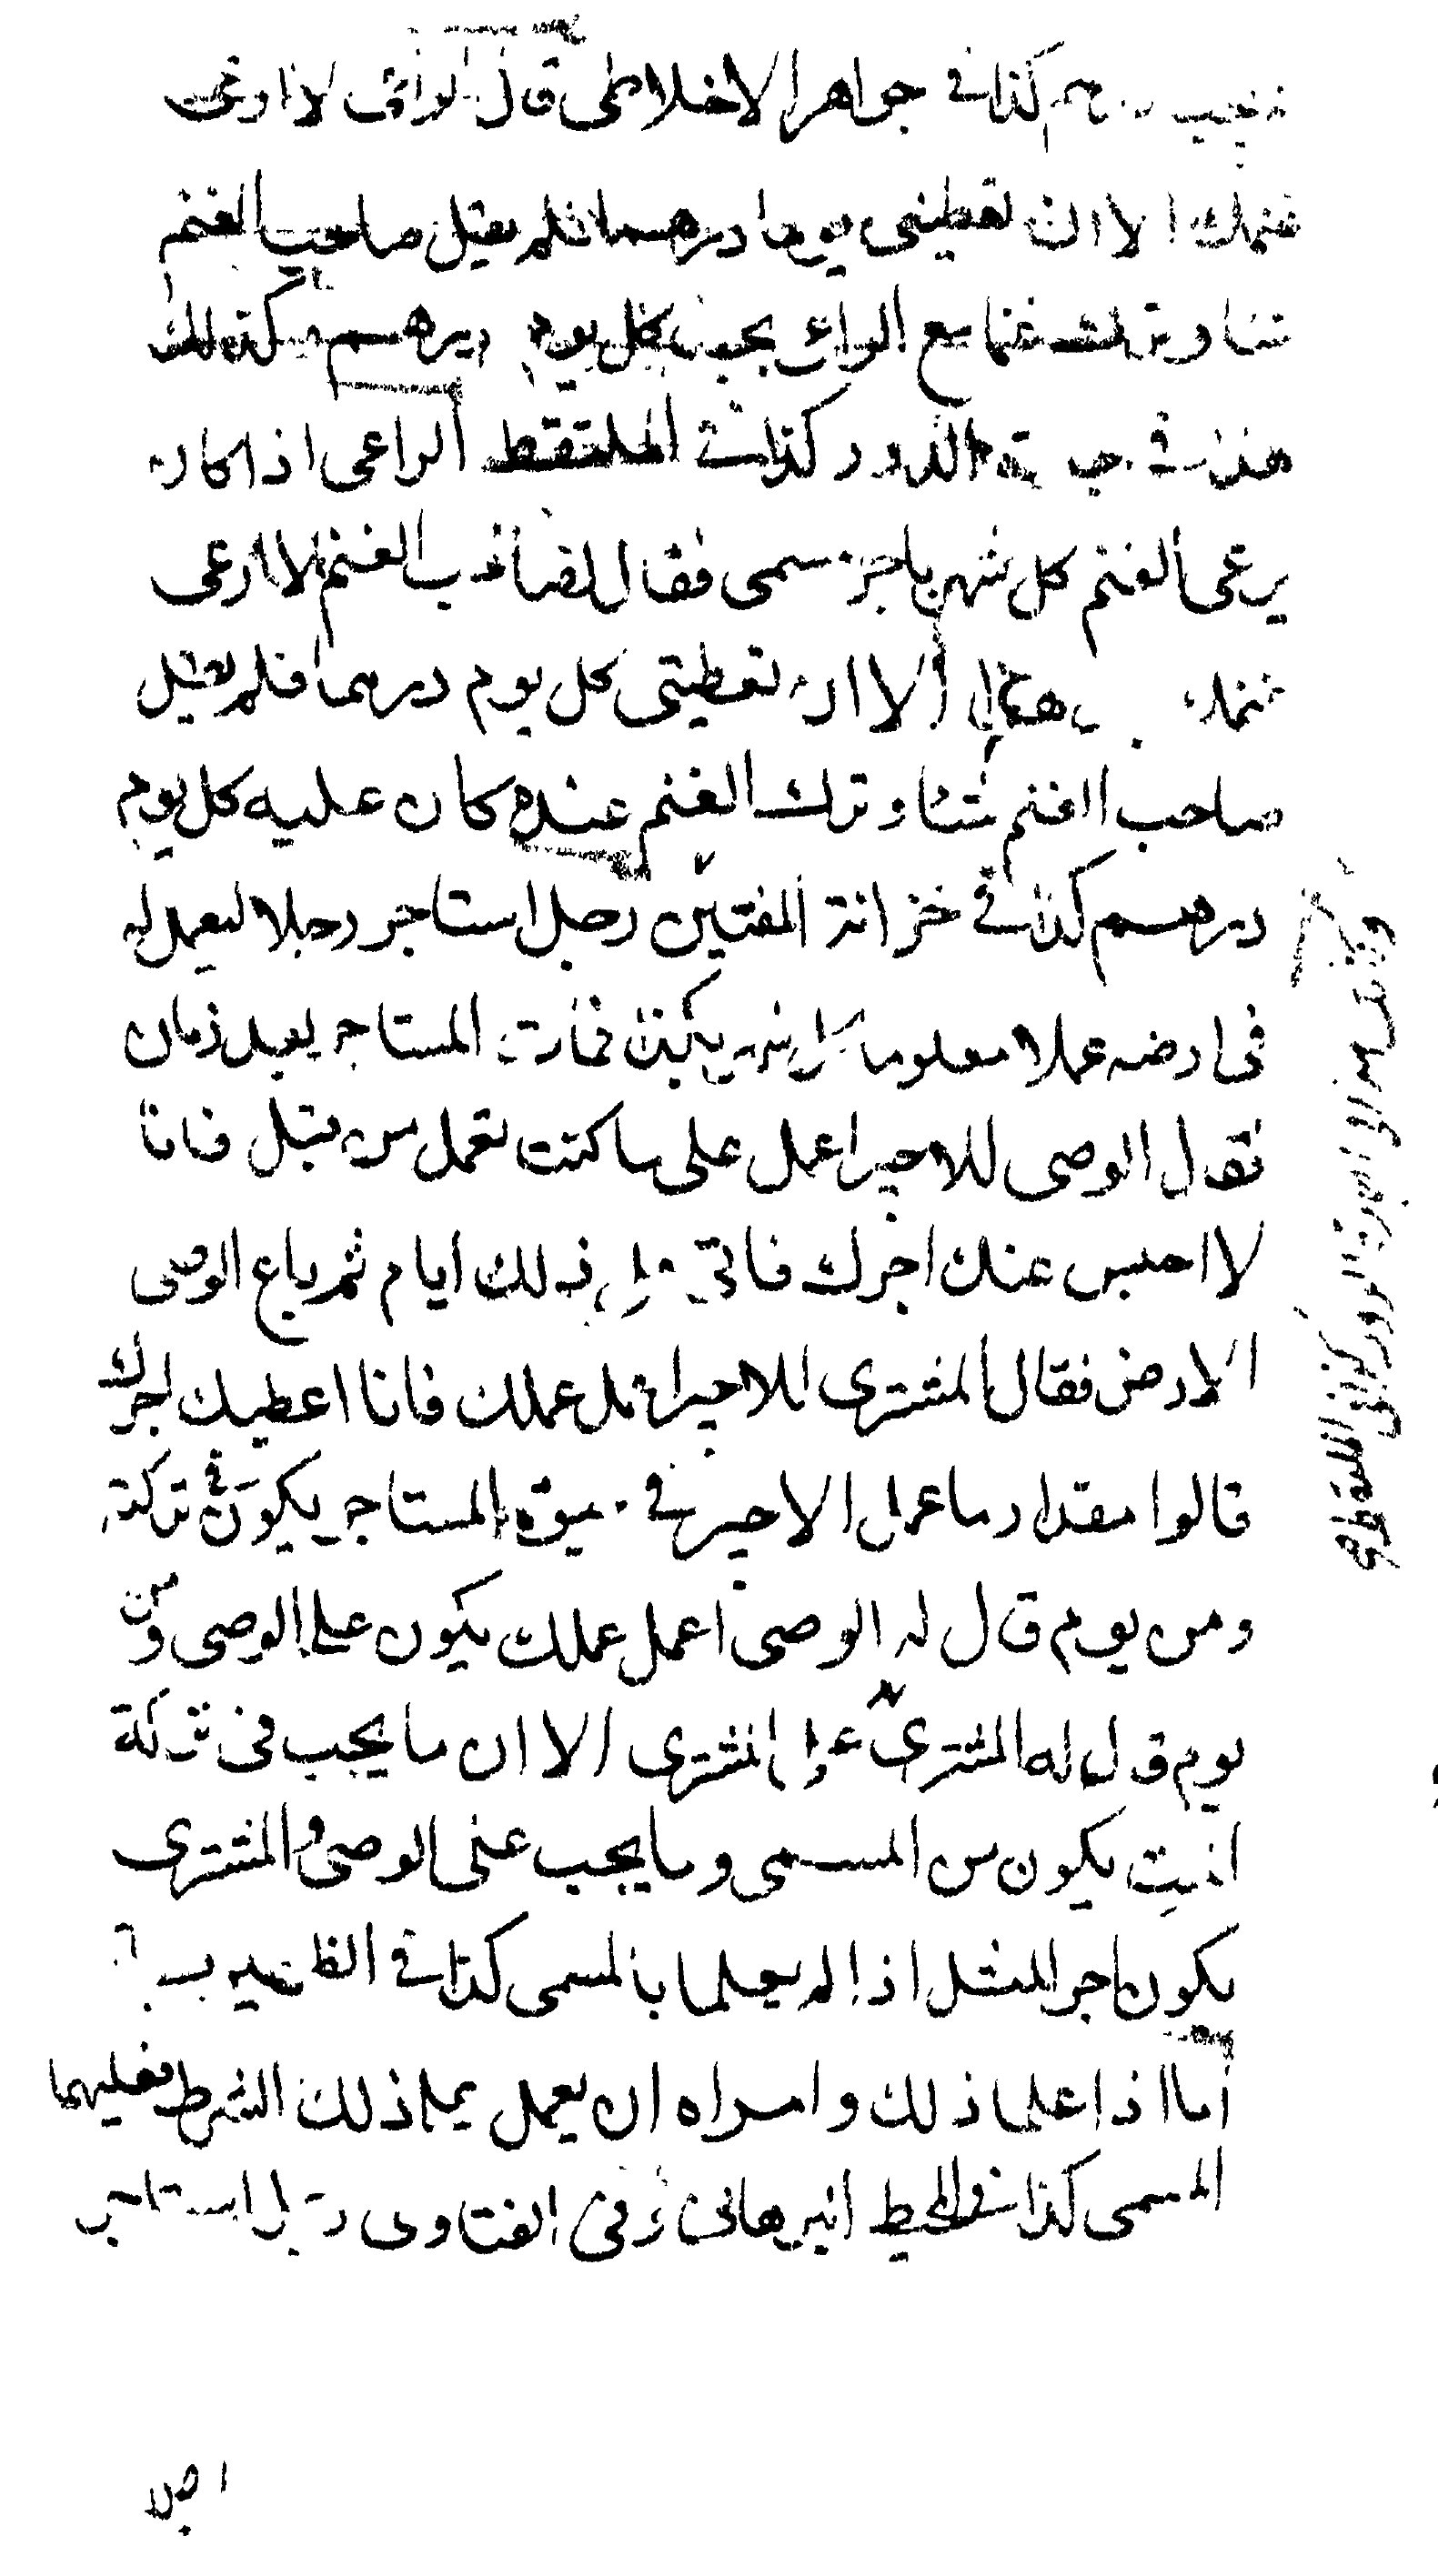 كذا في جواهر الاخلاطى قال الراعى لا ارعى
غنمك الا ان تعطينى يوما درهما فلم يقل صاحب الغنم
شيئا وترك غنما مع الراعى يجب كل يوم درهم وكذلك
هذا في الدور كذا في الملتقط الراعى اذا كان
يرعى الغنم كل شهر باجر مسمى فقال لصاحب الغنم لا ارعى
غنمك الا ان تعطينى كل يوم درهما فلم يقل
صاحب الغنم شيئا وترك الغنم عنده كان عليه كل يوم
درهم كذا في خزانة المفتين رجل استاجر رجلا ليعمل له
في ارضه عملا معلوما كل شهر بكذا فمات المستاجر بعد زمان
فقال الوصى للاجير اعمل على ما كنت تعمل من قبل فانا
لا احبس عنك اجرك فاتى على ذلك ايام ثم باع الوصى
الارض فقال المشترى للاجير اعمل عملك فانا اعطيك اجرك
قالوا مقدار ما عمل الاجير في حيوة المستاجر يكون في تركته
ومن يوم قال له الوصى اعمل عملك يكون على الوصى ومن
يوم قال له المشترى على المشترى الا ان ما يجب في تركة
الميت يكون من المسمى وما يجب على الوصى والمشترى
يكون اجر المثل اذا لم يعلما بالمسمى كذا في الظهيرية
اما اذا علما ذلك وامراه ان يعمل بما ذلك الشرط فعليهما
المسمى كذا في المحيط البرهانى وفى الفتاوى رجل استاجر